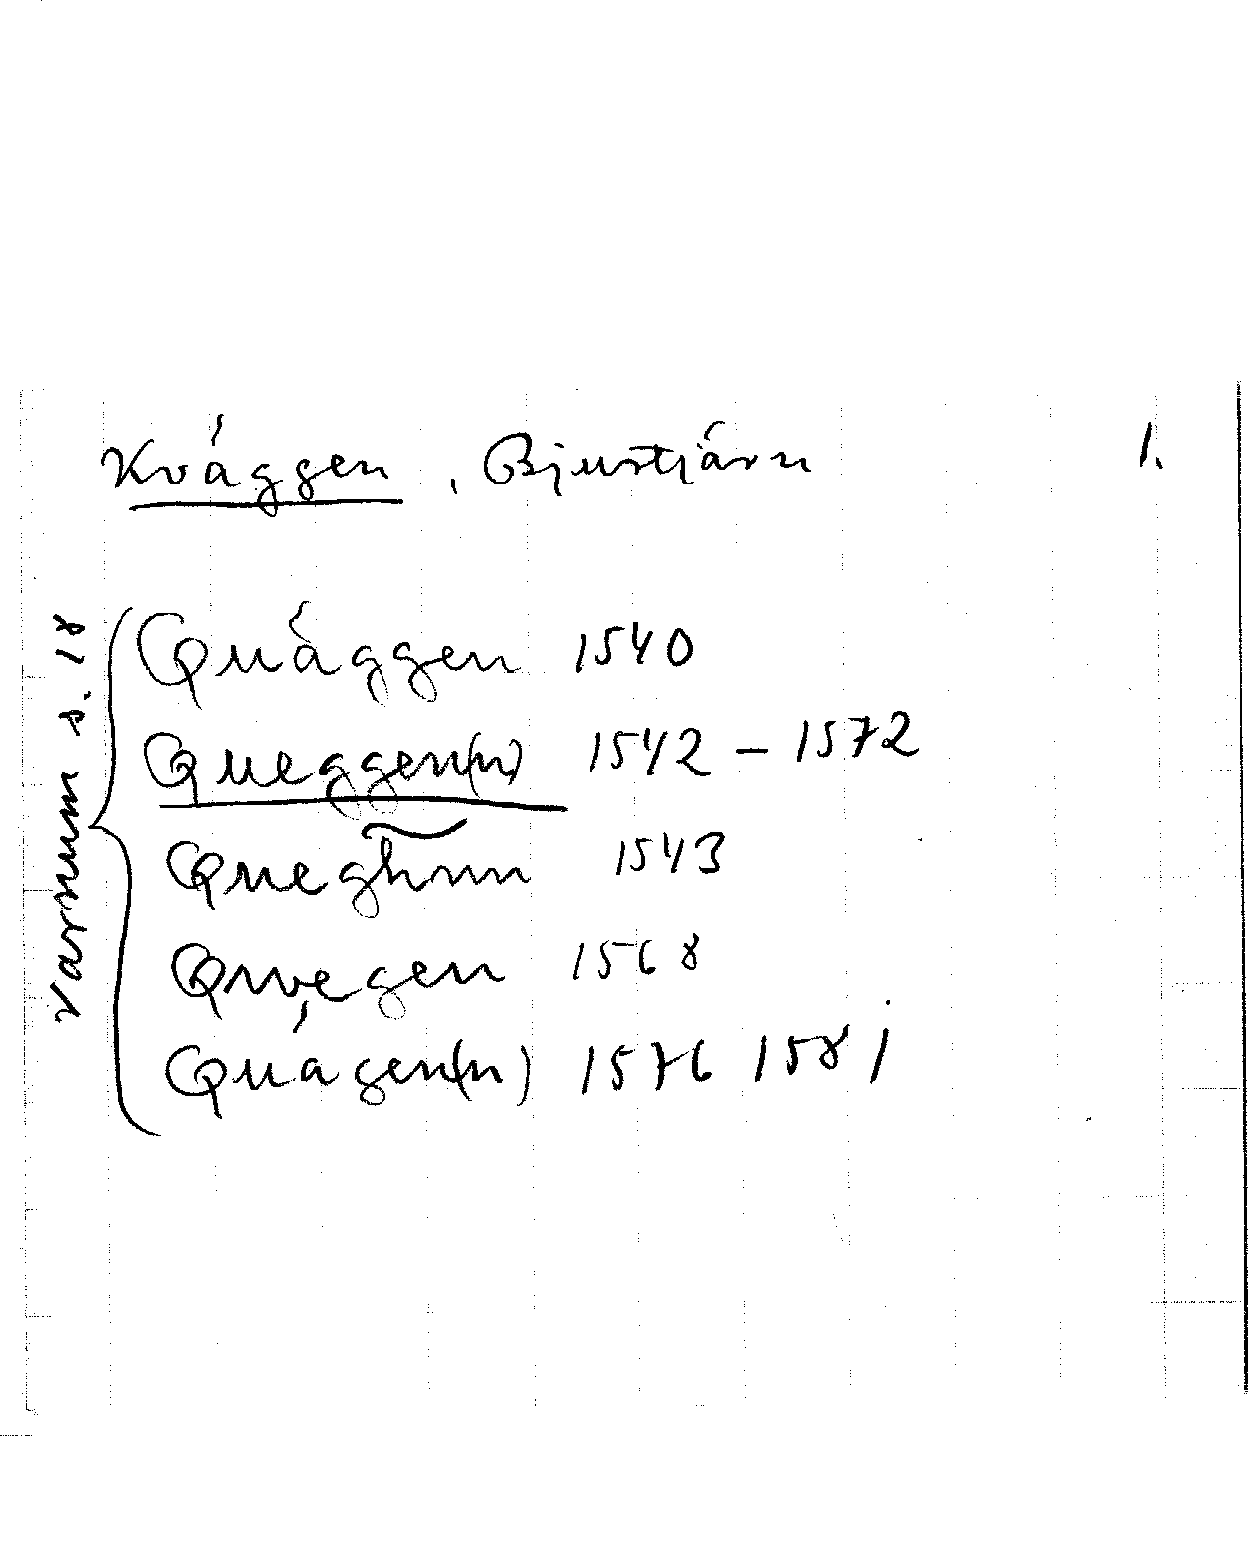 Kväggen, Bjurtjärn 1.
Varnum s. 18
Quäggen 1540
Queggen(n) 1542 – 1572
Queghnn 1543
Qwegen 1568
Quägen(n) 1576 1581